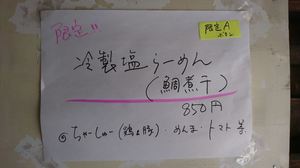 限定!!
限定A
ボタン
冷製塩らーめん
(鯛煮干)
850円
◎ちゃーしゅー(鶏&豚)・めんま・トマト